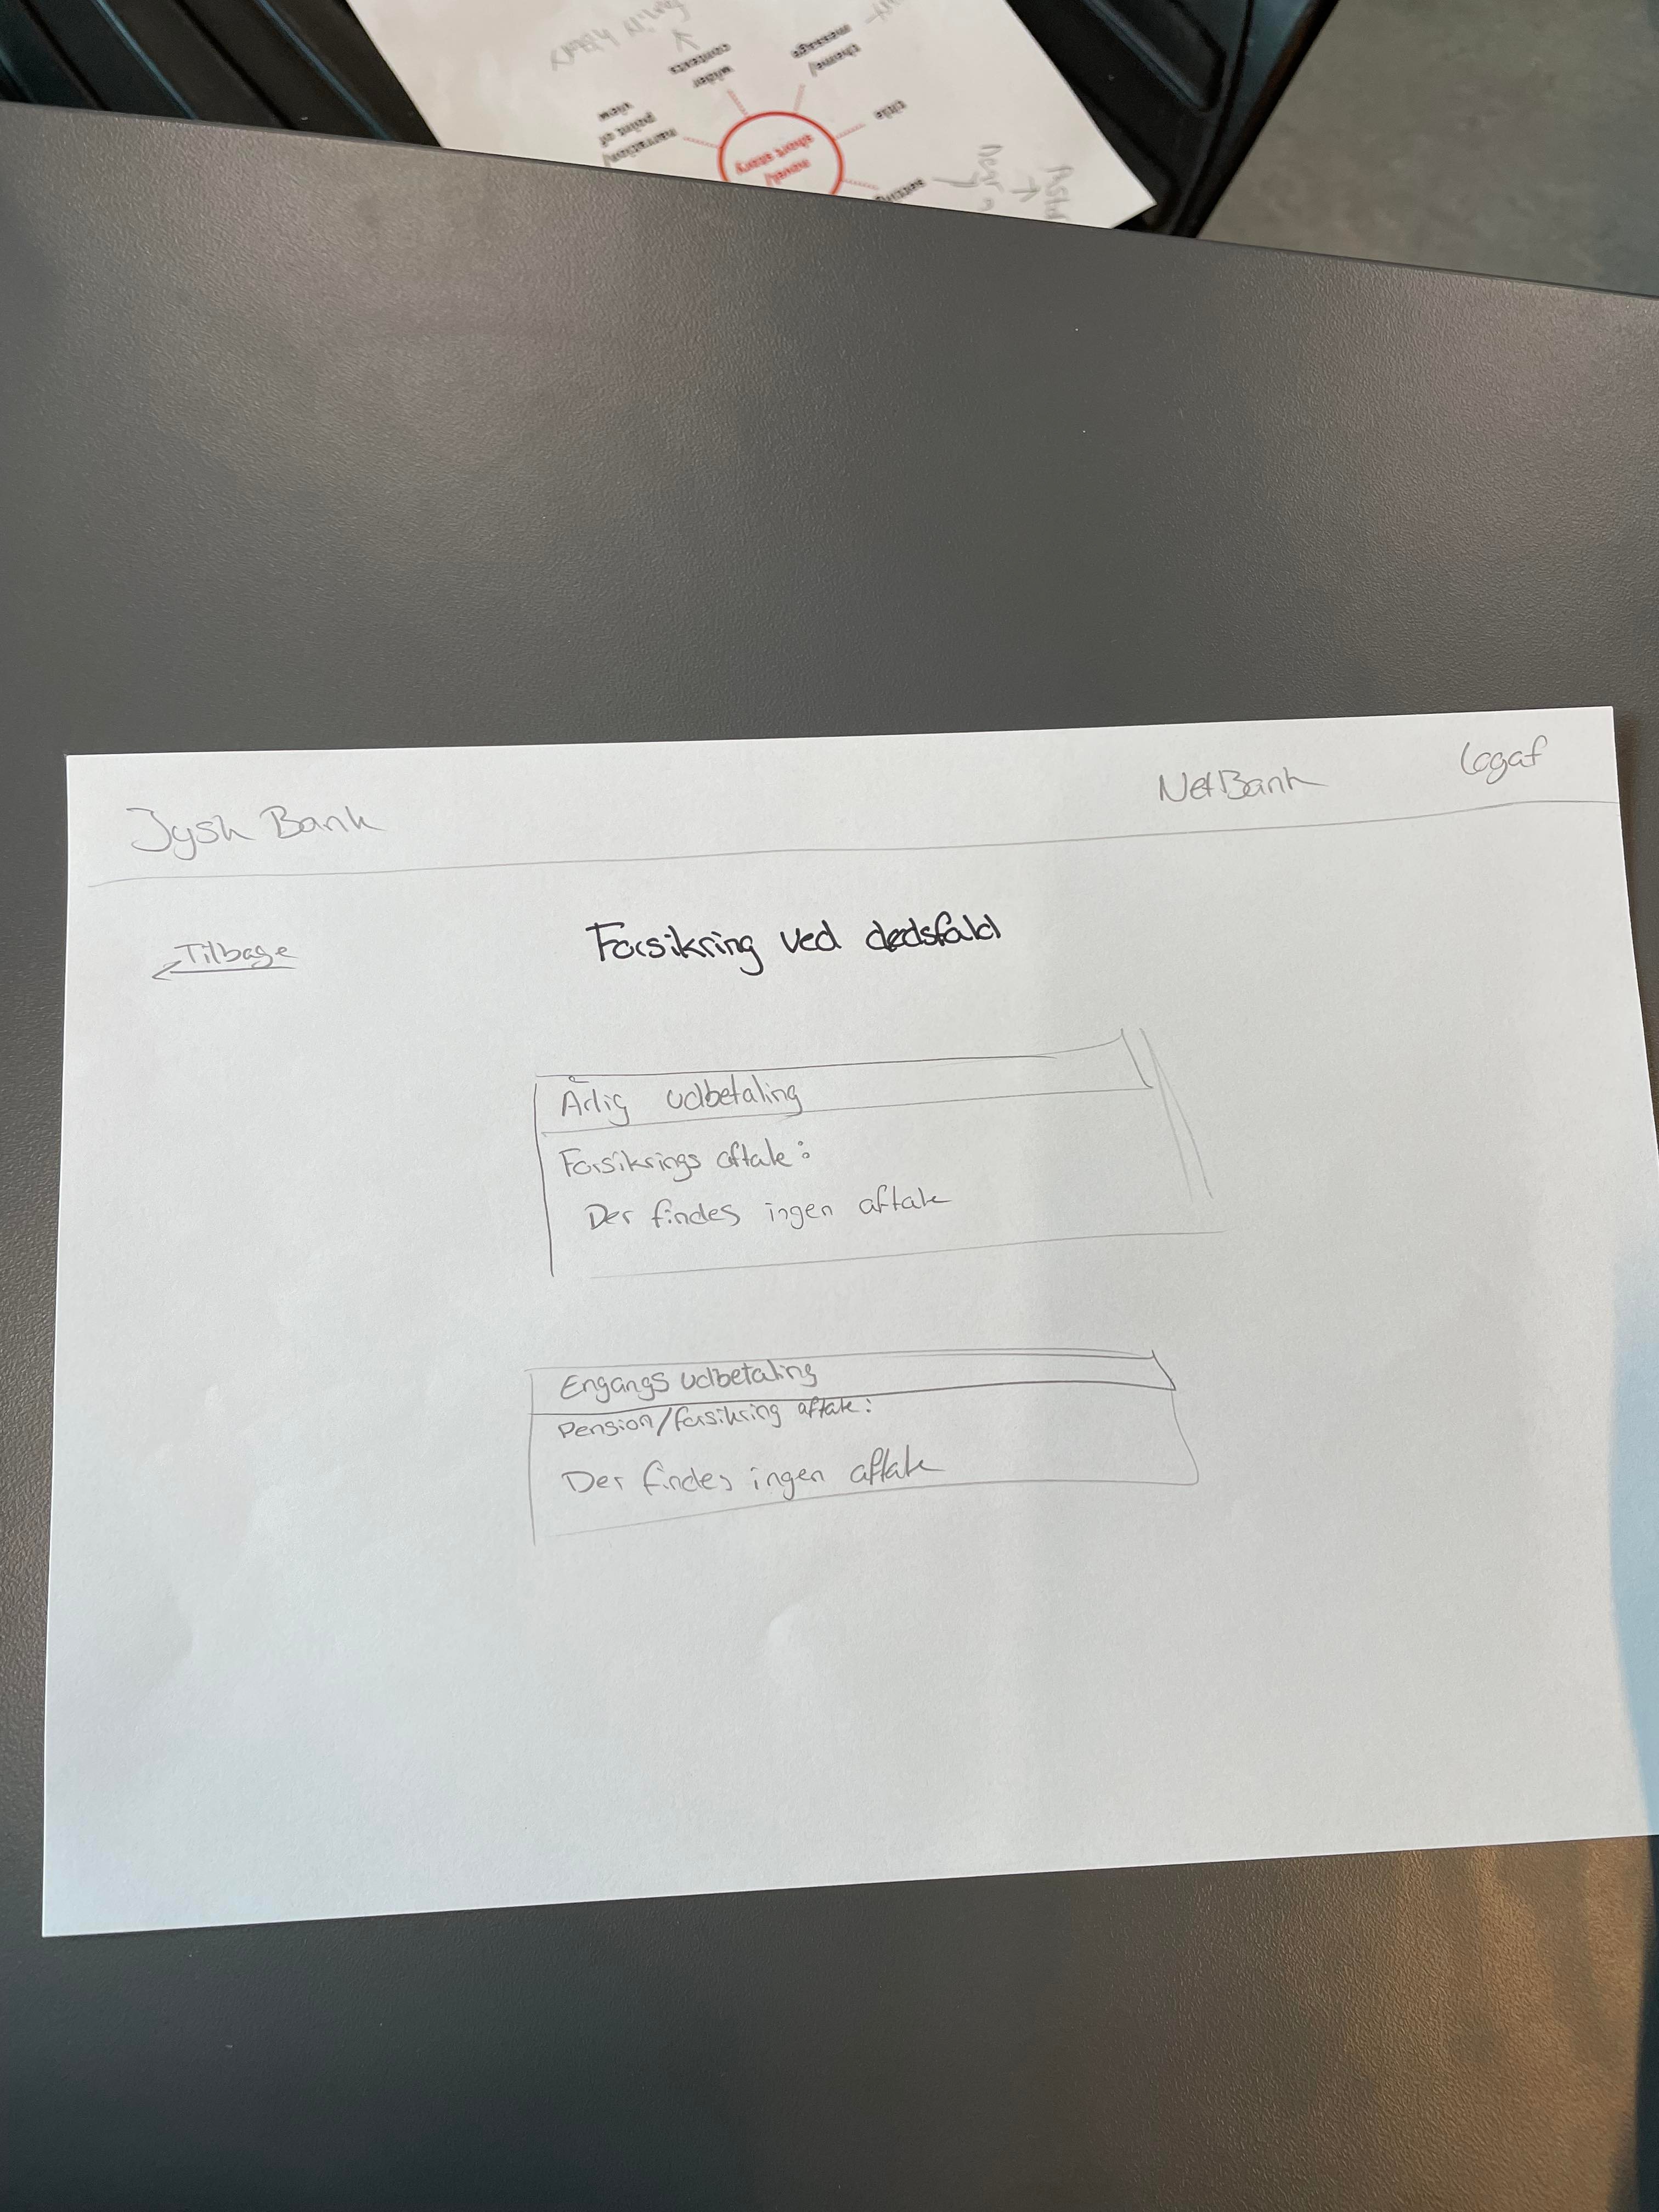 wider
contexts
theme/
message
title
narration/
point of
view
novel/
short story
setting
Jysk Bank
NetBank
Logaf
Tilbage
Forsikring ved dødsfald
Årlig udbetaling
Forsikrings aftale:
Der findes ingen aftale
Engangs udbetaling
Pension/forsikring aftale:
Der findes ingen aftale